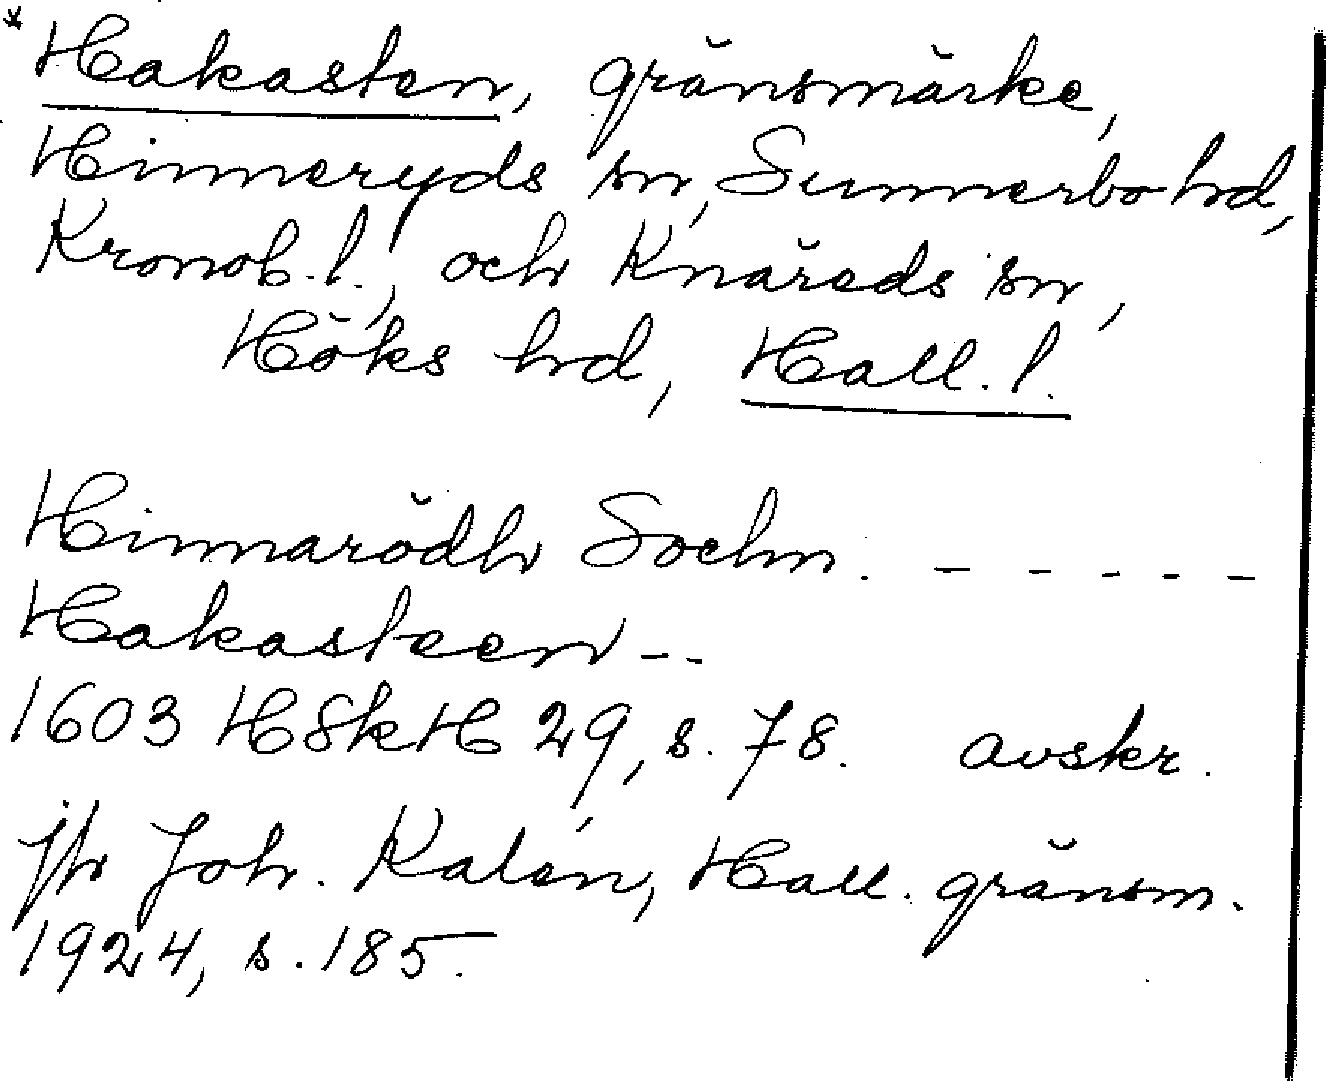 * Hakasten, gränsmärke,
Hinneryds sn, Sunnerbo hd,
Kronob. l., och Knäreds sn,
Höks hd, Hall. l.
Hinnarödh Sochn. - - - - -
Hakasteen - -
1603 HSkH 29, s. 78. avskr.
jfr Joh. Kalén, Hall. gränsm.
1924, s. 185.